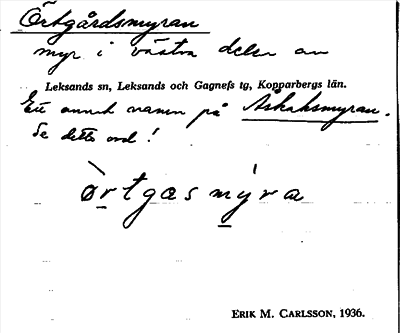 Örtgårdsmyran
myr i västra delen av
Leksands sn, Leksands och Gagnefs tg, Kopparbergs län.
Ett annat namn på Askaksmyran.
Se detta ord!
òrtgasmýra
ERIK M. CARLSSON, 1936.